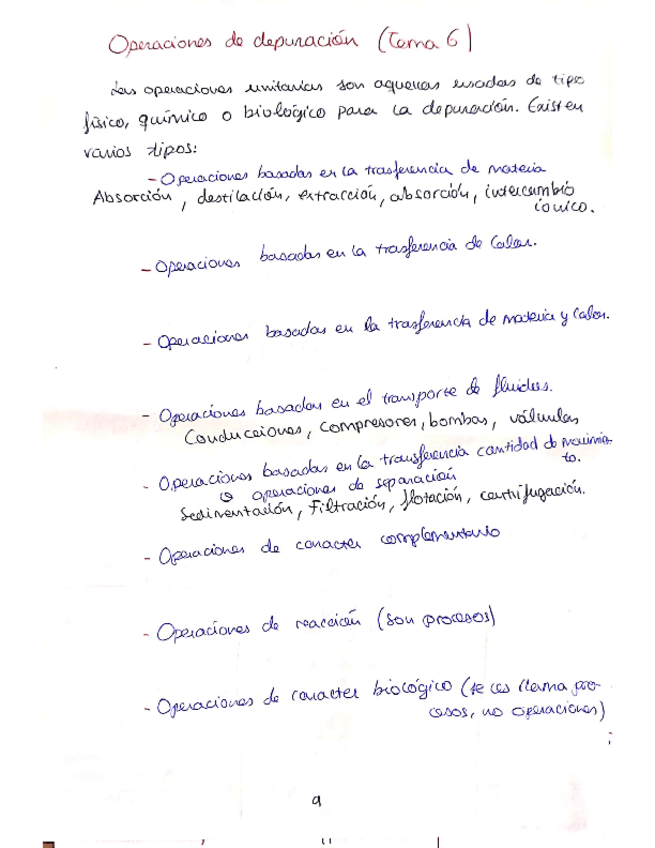 Operaciones de depuración (Tema 6)
Las operaciones unitarias son aquellas usadas de tipo
físico, químico o biológico para la depuración. Existen
varios tipos:
- Operaciones basadas en la trasferencia de materia
Absorción, destilación, extracción, absorción, intercambio
iónico.
- Operaciones basadas en la trasferencia de Calor.
- Operaciones basadas en la trasferencia de materia y Calor.
- Operaciones basadas en el transporte de fluidos.
Conducciones, compresores, bombas, válvulas
- Operaciones basadas en la transferencia cantidad de movimien-
to.
operaciones de separación
Sedimentación, Filtración, flotación, centrifugación.
- Operaciones de caracter complementario
- Operaciones de reacción (son procesos)
- Operaciones de caracter biológico (se les llama pro-
cesos, no operaciones)
9